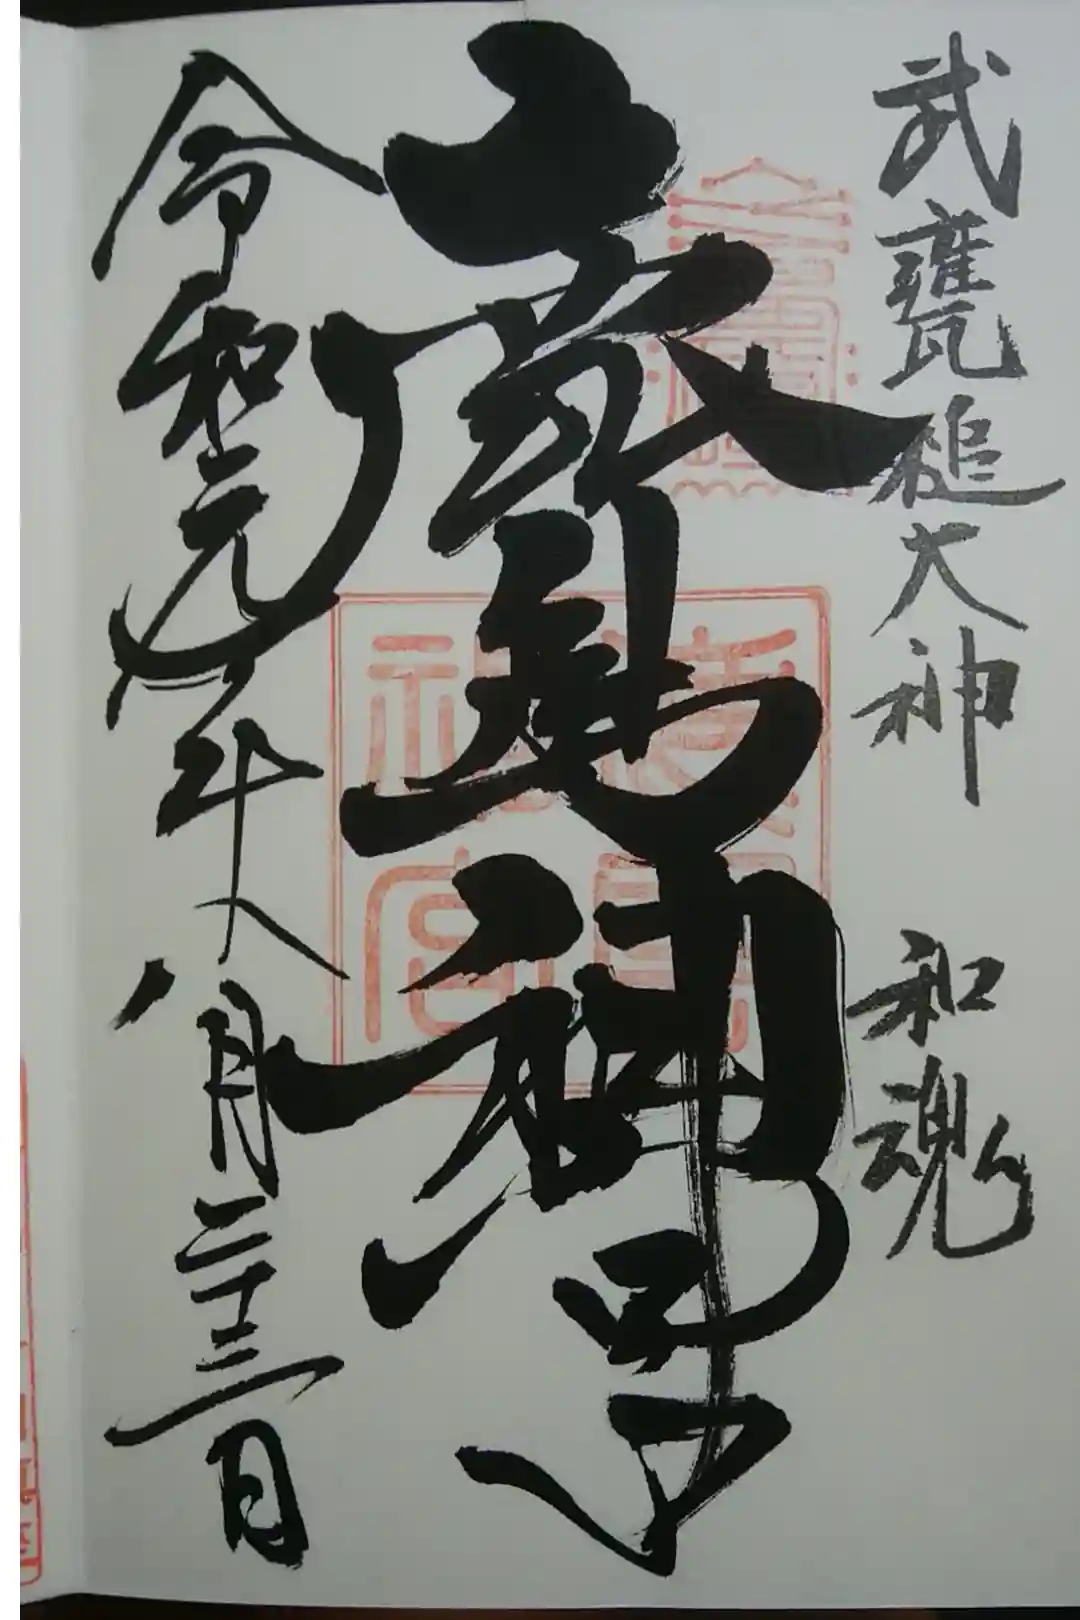 武甕槌大神　和魂
鹿島神宮
令和元年八月二十三日